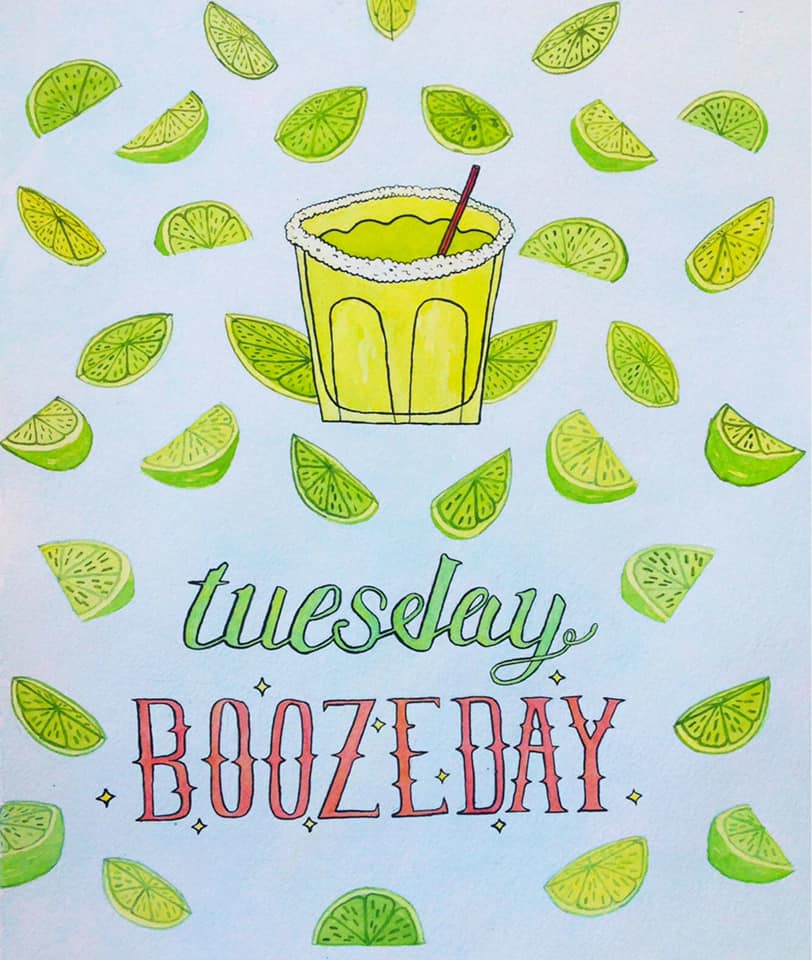 tuesday
BOOZEDAY